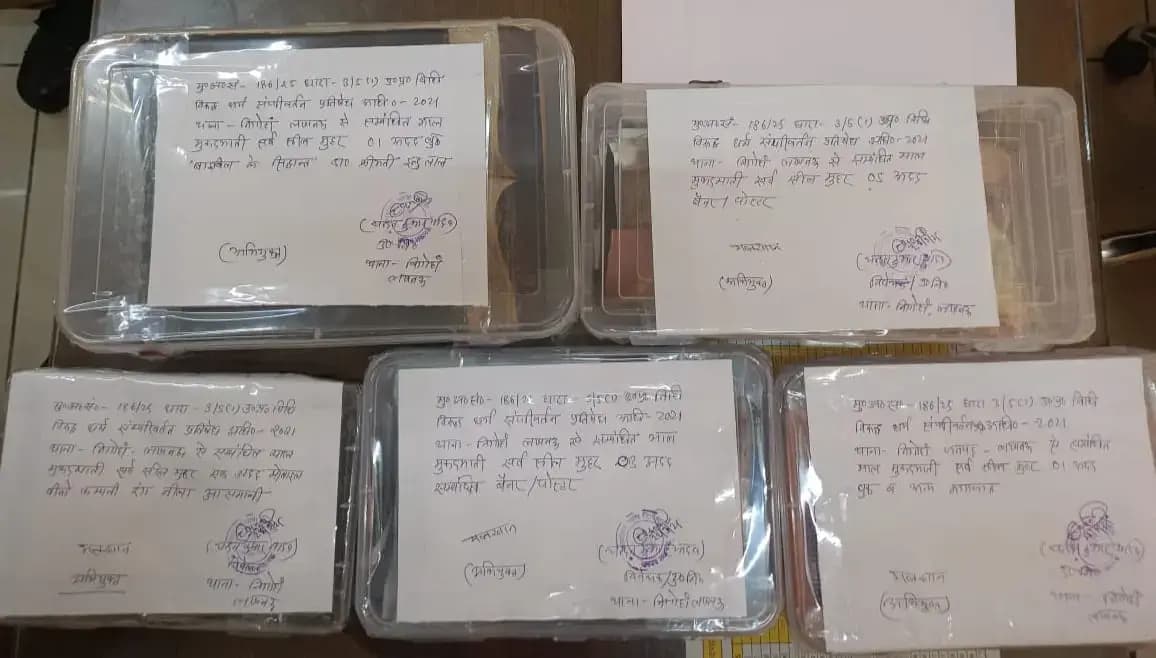 मु०अ०सं०- 186/25 धारा- 3/5(1) उ०प्र० विधि
विरूद्ध धर्म संपरिवर्तन प्रतिषेध अधि०- 2021
थाना- निगोहाँ लखनऊ से सम्बंधित माल
मुकदमाती सर्व सील मुहर 01 अदद बुक
"बाइबिल के सिद्धान्त" डा०
(अभियुक्त)
उ०नि०
थाना- निगोहाँ
लखनऊ
मु०अ०सं०- 186/25 धारा- 3/5(1) उ०प्र० विधि
विरूद्ध धर्म संपरिवर्तन प्रतिषेध अधि०- 2021
थाना- निगोहाँ लखनऊ से सम्बंधित माल
मुकदमाती सर्व सील मुहर 05 अदद
बैनर/पोस्टर
मलखान
(अभियुक्त)
विवेचक/उ०नि०
थाना- निगोहाँ, लखनऊ
मु०अ०सं०- 186/25 धारा- 3/5(1) उ०प्र० विधि
विरूद्ध धर्म संपरिवर्तन प्रतिषेध अधि०- 2021
थाना- निगोहाँ- लखनऊ से सम्बंधित माल
मुकदमाती सर्व सील मुहर एक अदद मोबाइल
वीवो कम्पनी रंग नीला आसमानी
मलखान
अभियुक्त
थाना- निगोहाँ
लखनऊ
मु०अ०सं०- 186/25 धारा- 3/5(1) उ०प्र० विधि
विरूद्ध धर्म संपरिवर्तन प्रतिषेध अधि०- 2021
थाना- निगोहाँ लखनऊ से सम्बंधित माल
मुकदमाती सर्व सील मुहर 08 अदद
सम्बंधित बैनर/पोस्टर
मलखान
(अभियुक्त)
विवेचक/उ०नि०
थाना- निगोहाँ लखनऊ
मु०अ०सं०- 186/25 धारा 3/5(1) उ०प्र० विधि
विरूद्ध धर्म संपरिवर्तन प्र० अधि०- 2021
थाना- निगोहाँ जनपद- लखनऊ से सम्बंधित
माल मुकदमाती सर्व सील मुहर 01 अदद
बुक व अन्य कागजात
मलखान
(अभियुक्त)
उ०नि०
थाना- निगोहाँ
लखनऊ